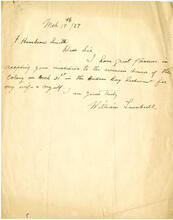 Mch 17th/27
F. Harrison Smith
Dear Sir
I have great pleasure in
accepting your invitation to the reunion dinner of the
Colony on Mch 31st in the Hudson Bay Restaurant for
my wife & myself.
I am yours truly
William